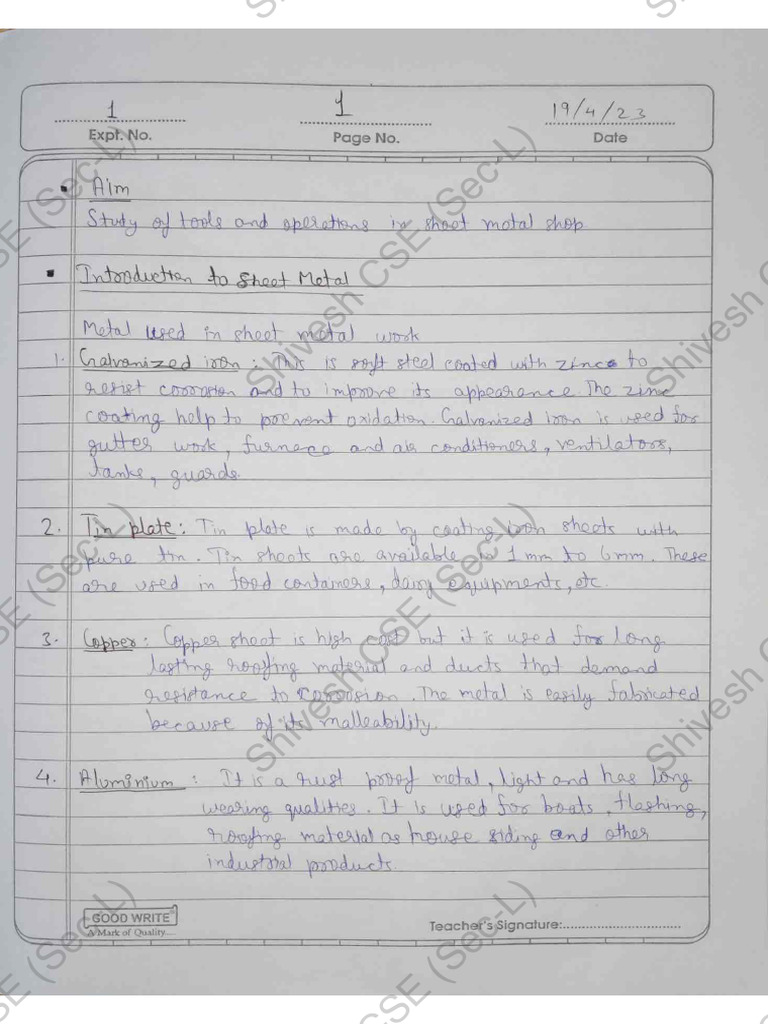 1
Expt. No.
1
Page No.
19/4/23
Date
Aim
Study of tools and operations in sheet metal shop
Introduction to Sheet Metal
Metal used in sheet metal work
1. Galvanized iron : This is soft steel coated with zinc to
resist corrosion and to improve its appearance. The zinc
coating help to prevent oxidation. Galvanized iron is used for
gutter work, furnace and air conditioners, ventilators,
tanks, guards.
2. Tin plate : Tin plate is made by coating iron sheets with
pure tin. Tin sheets are available in 1 mm to 6 mm. These
are used in food containers, dairy equipments, etc.
3. Copper : Copper sheet is high cost but it is used for long
lasting roofing material and ducts that demand
resistance to corrosion. The metal is easily fabricated
because of its malleability.
4. Aluminium : It is a rust proof metal, light and has long
wearing qualities. It is used for boats, flashing,
roofing material as house siding and other
industrial products.
GOOD WRITE
A Mark of Quality....
Teacher's Signature:..............................
Shivesh CSE (Sec-L)